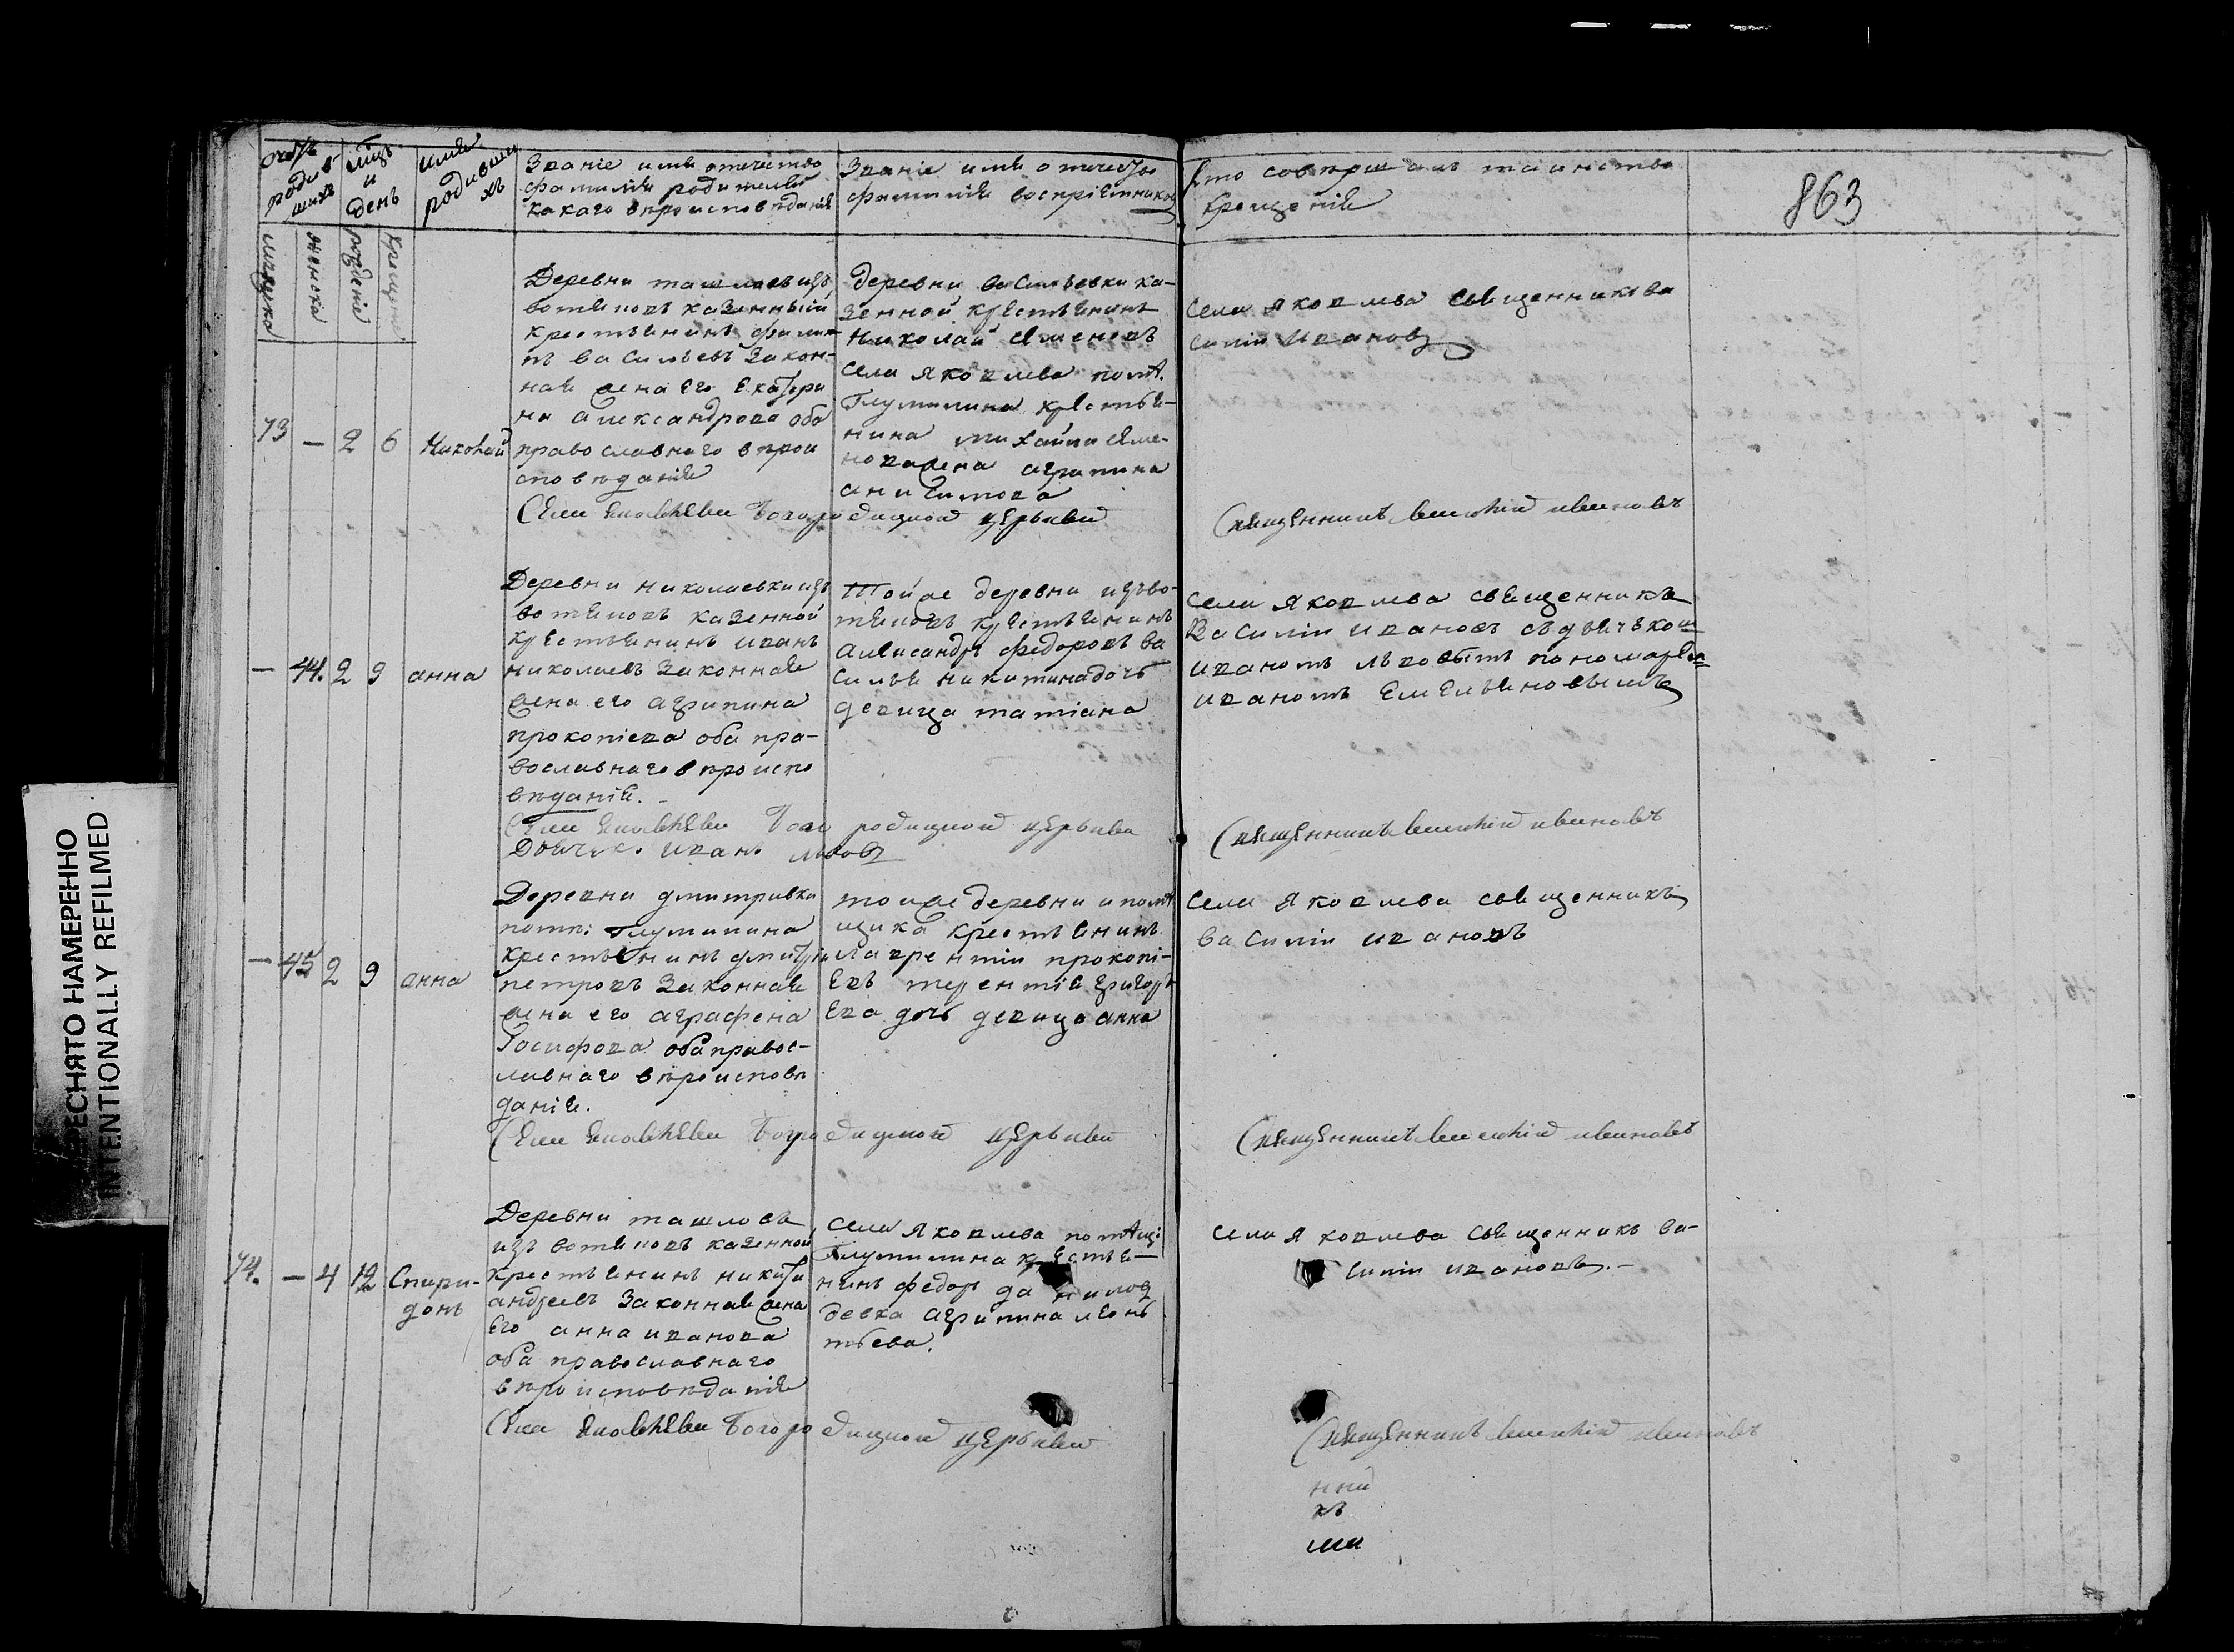 863
счетъ родившихъ
мцъ и день
имя родившихъ
Званіе имя отчество
фамилія родителей
какаго вѣроисповѣданія
Званіе имя отчество
фамилія воспріемниковъ
Кто совершалъ таинство
крещенія
мужска
женска
рожденіе
крещеніе
73 — 2 6 Николай
Деревни ташлоевъ изъ
вотяковъ казенный
крестьянинъ филип
пъ васильевъ закон-
ная жена его екатери
на александрова оба
православнаго вѣрои
споведанія
деревни васильевки ка-
зенной крестьянинъ
Николай семеновъ
села яковлева
Глумилина крестья-
нина михаила семе-
нова жена агрипина
анисимова
села яковлева священникъ ва
силіи Ивановъ
Села Яковлева Богородицкой церькви
Священникъ василий ивановъ
— 44. 2 9 анна
Деревни николаевки изъ
вотяковъ казенной
крестьянинъ иванъ
николаевъ законная
жена его агрипина
прокопіева оба пра-
вославнаго вѣроиспо
вѣданій.
Той же деревни изъ во-
тяковъ крестьянинъ
александръ федоровъ ва
силья никитина дочь
девица татіана
села яковлева священникъ
Василіи ивановъ съ дьячком
иваномъ львовымъ пономарем
иваномъ Емельяновымъ
Села Яковлева Богородицкой церькви
Дьячек. иванъ львовъ
Священникъ василий ивановъ
— 45 2 9 анна
Деревни дмитривки
помѣ: Глумилина
крестьянинъ дмитрій
петровъ законная
жена его аграфена
Иосифова оба правос-
лавнаго вѣроисповѣ
данія.
той же деревни и помѣ
щика крестьянинъ
лаврентіи прокопі-
евъ терентія григорь
ева дочь девица анна
села яковлева священникъ
василіи ивановъ
Села Яковлева Богородицкой церькви
Священникъ василий ивановъ
74. — 4 12 Спири-
донъ
Деревни ташлоевъ
изъ вотяковъ казенной
крестьянинъ никита
андреевъ законная жена
его анна иванова
оба православнаго
вѣроисповѣданія
села яковлева помѣщ:
Глумилина крестья-
нинъ федоръ данилов
девка агрипина леонь
тьева.
села яковлева священникъ ва-
силіи ивановъ.—
Села Яковлева Богородицкой церькви
Священникъ василий ивановъ
нни
къ
ма
ПЕРЕСНЯТО НАМЕРЕННО
INTENTIONALLY REFILMED